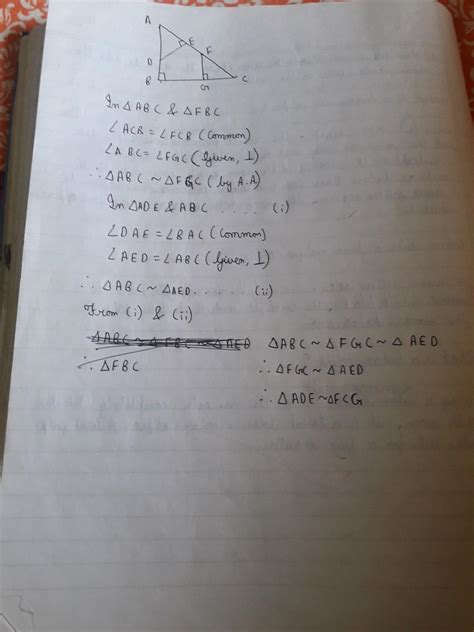 A
E
F
D
B
G
C
In △ABC & △FBC
∠ACB = ∠FCB (Common)
∠ABC = ∠FGC (Given, ⊥)
∴ △ABC ~ △FGC (by A.A)
In △ADE & ABC ..... (i)
∠DAE = ∠BAC (Common)
∠AED = ∠ABC (Given, ⊥)
∴ △ABC ~ △AED...... (ii)
From (i) & (ii)
△ABC ~ △FBC ~ △AED △ABC ~ △FGC ~ △AED
∴ △FBC ∴ △FGC ~ △AED
∴ △ADE ~ △FCG